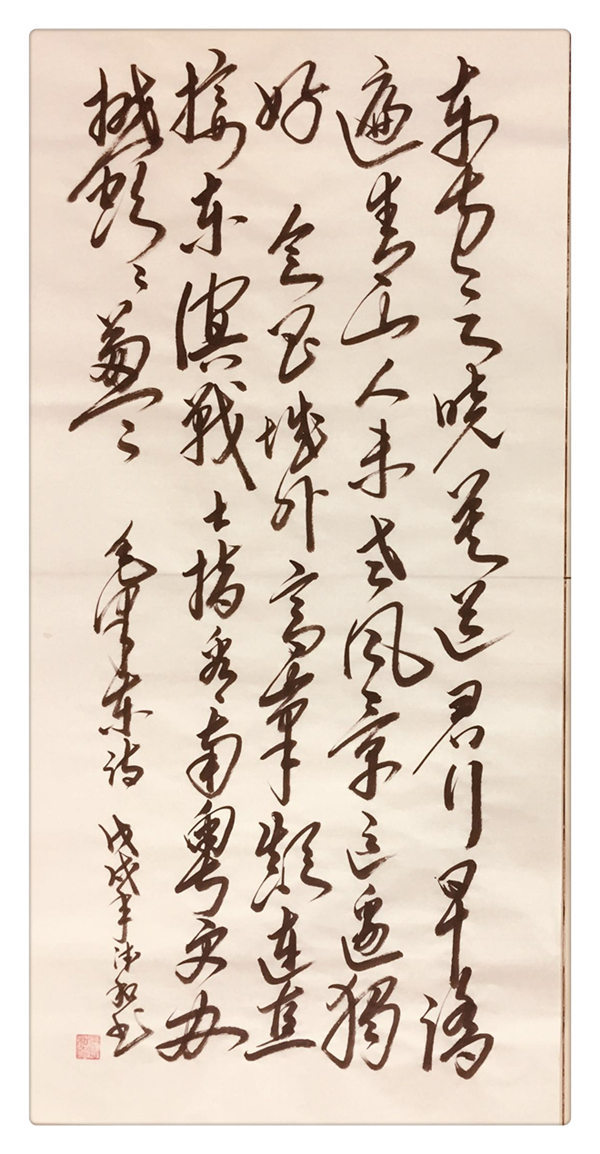 东方欲晓莫道君行早踏
遍青山人未老风景这边独
好 会昌城外高峰颠连直
接东溟战士指看南粤更加
郁〻葱〻 毛泽东诗 戊戌年 书